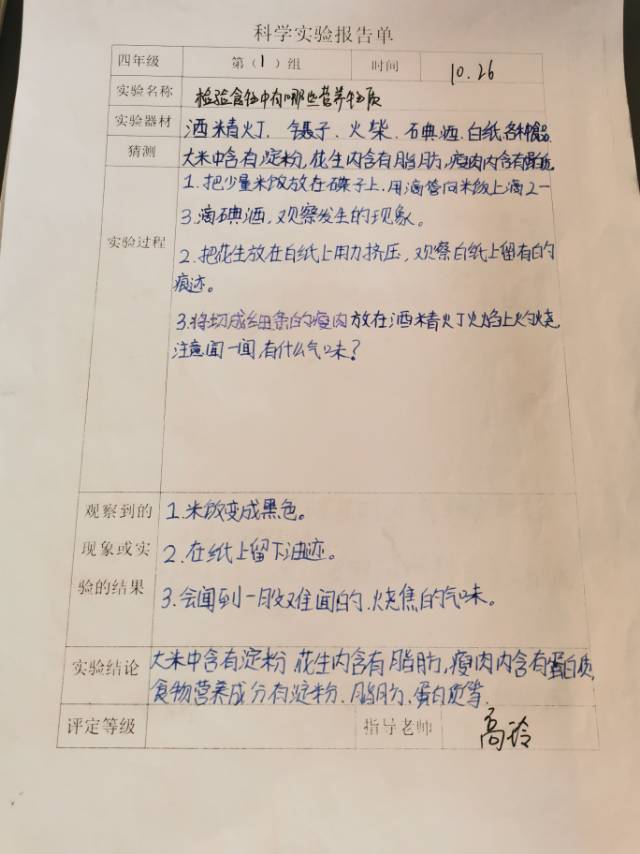 科学实验报告单
四年级 第（1）组 时间 10.26
实验名称 检验食物中有哪些营养物质
实验器材 酒精灯、镊子、火柴、石典酒、白纸、各种食品
猜测 大米中含有淀粉，花生内含有脂肪，瘦肉内含有蛋白质
1.把少量米饭放在碟子上，用滴管向米饭上滴2一
3.滴碘酒，观察发生的现象。
实验过程 2.把花生放在白纸上用力挤压，观察白纸上留有的
痕迹。
3.将切成细条的瘦肉放在酒精灯火焰上灼烧，
注意闻一闻，有什么气味？
观察到的 1.米饭变成黑色。
现象或实 2.在纸上留下油迹。
验的结果 3.会闻到一股难闻的、烧焦的气味。
实验结论 大米中含有淀粉 花生内含有脂肪，瘦肉内含有蛋白质，
食物营养成分有淀粉、脂肪、蛋白质等.
评定等级 指导老师 高玲